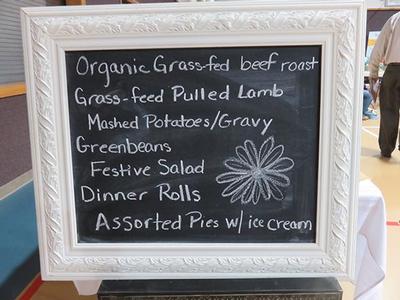 Organic Grass-fed beef roast
Grass-feed Pulled Lamb
Mashed Potatoes/Gravy
Greenbeans
Festive Salad
Dinner Rolls
Assorted Pies w/ ice cream